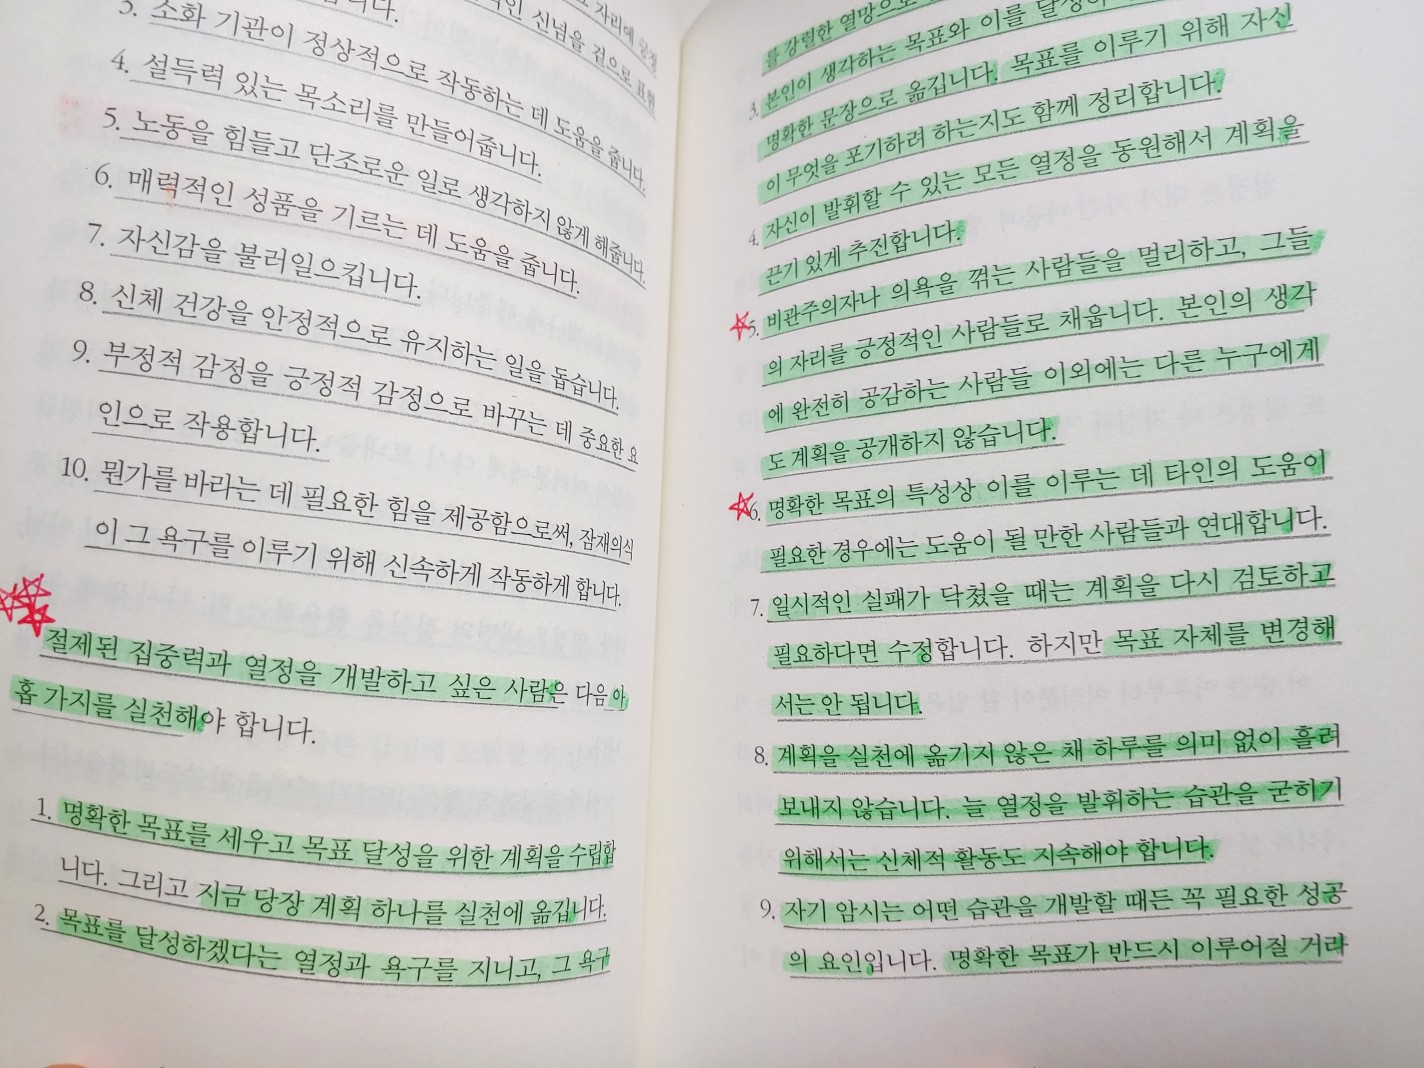 자리에 긍정
적인 신념을 겉으로 표현
합니다.
3. 소화 기관이 정상적으로 작동하는 데 도움을 줍니다.
4. 설득력 있는 목소리를 만들어줍니다.
5. 노동을 힘들고 단조로운 일로 생각하지 않게 해줍니다.
6. 매력적인 성품을 기르는 데 도움을 줍니다.
7. 자신감을 불러일으킵니다.
8. 신체 건강을 안정적으로 유지하는 일을 돕습니다.
9. 부정적 감정을 긍정적 감정으로 바꾸는 데 중요한 요
인으로 작용합니다.
10. 뭔가를 바라는 데 필요한 힘을 제공함으로써, 잠재의식
이 그 욕구를 이루기 위해 신속하게 작동하게 합니다.
절제된 집중력과 열정을 개발하고 싶은 사람은 다음 아
홉 가지를 실천해야 합니다.
1. 명확한 목표를 세우고 목표 달성을 위한 계획을 수립합
니다. 그리고 지금 당장 계획 하나를 실천에 옮깁니다.
2. 목표를 달성하겠다는 열정과 욕구를 지니고, 그 욕구
를 강렬한 열망으로
3. 본인이 생각하는 목표와 이를 달성
명확한 문장으로 옮깁니다. 목표를 이루기 위해 자신
이 무엇을 포기하려 하는지도 함께 정리합니다.
4. 자신이 발휘할 수 있는 모든 열정을 동원해서 계획을
끈기 있게 추진합니다.
5. 비관주의자나 의욕을 꺾는 사람들을 멀리하고, 그들
의 자리를 긍정적인 사람들로 채웁니다. 본인의 생각
에 완전히 공감하는 사람들 이외에는 다른 누구에게
도 계획을 공개하지 않습니다.
6. 명확한 목표의 특성상 이를 이루는 데 타인의 도움이
필요한 경우에는 도움이 될 만한 사람들과 연대합니다.
7. 일시적인 실패가 닥쳤을 때는 계획을 다시 검토하고
필요하다면 수정합니다. 하지만 목표 자체를 변경해
서는 안 됩니다.
8. 계획을 실천에 옮기지 않은 채 하루를 의미 없이 흘려
보내지 않습니다. 늘 열정을 발휘하는 습관을 굳히기
위해서는 신체적 활동도 지속해야 합니다.
9. 자기 암시는 어떤 습관을 개발할 때든 꼭 필요한 성공
의 요인입니다. 명확한 목표가 반드시 이루어질 거라